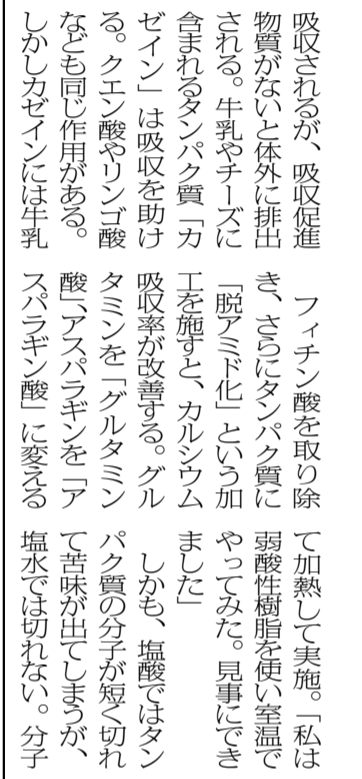 吸収されるが、吸収促進
物質がないと体外に排出
される。牛乳やチーズに
含まれるタンパク質「カ
ゼイン」は吸収を助け
る。クエン酸やリンゴ酸
なども同じ作用がある。
しかしカゼインには牛乳
フィチン酸を取り除
き、さらにタンパク質に
「脱アミド化」という加
工を施すと、カルシウム
吸収率が改善する。グル
タミンを「グルタミン
酸」、アスパラギンを「ア
スパラギン酸」に変える
て加熱して実施。「私は
弱酸性樹脂を使い室温で
やってみた。見事にでき
ました」
しかも、塩酸ではタン
パク質の分子が短く切れ
て苦味が出てしまうが、
塩水では切れない。分子